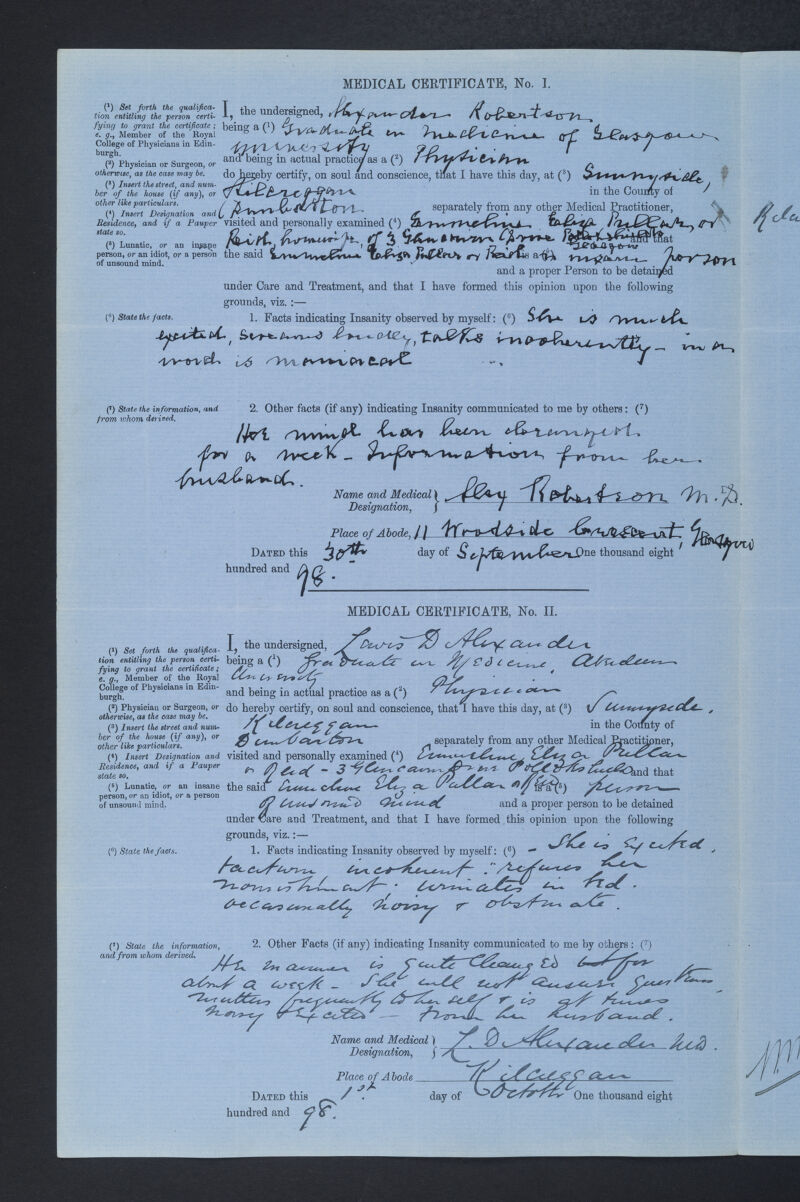 MEDICAL CERTIFICATE, No. I.
(¹) Set forth the qualifica-
tion entitling the person certi-
fying to grant the certificate;
e. g., Member of the Royal
College of Physicians in Edin-
burgh.
(²) Physician or Surgeon, or
otherwise, as the case may be.
(³) Insert the street, and num-
ber of the house (if any), or
other like particulars.
(⁴) Insert Designation and
Residence, and if a Pauper
state so.
(⁵) Lunatic, or an insane
person, or an idiot, or a person
of unsound mind.
I, the undersigned, Alexander Robertson
being a (¹) Graduate in Medicine of Glasgow
University
and being in actual practice as a (²) Physician
do hereby certify, on soul and conscience, that I have this day, at (³) Sunnyside,
Kilcreggan in the County of
Dumbarton separately from any other Medical Practitioner,
visited and personally examined (⁴) Emmeline Eliza Pullar or
Reid, housewife, of 3 Glencairn Drive Pollokshields
Glasgow and that
the said Emmeline Eliza Pullar or Reid is a (⁵) insane person
and a proper Person to be detained
under Care and Treatment, and that I have formed this opinion upon the following
grounds, viz. :—
(⁶) State the facts.
1. Facts indicating Insanity observed by myself: (⁶) She is much
excited, screams loudly, talks incoherently – in a
word is maniacal
(⁷) State the information, and
from whom derived.
2. Other facts (if any) indicating Insanity communicated to me by others: (⁷)
Her mind has been deranged
for a week – Information from her
husband.
Name and Medical
Designation, Alex Robertson M.D.
Place of Abode, 11 Woodside Crescent, Glasgow
DATED this 30th day of September One thousand eight
hundred and 98.
MEDICAL CERTIFICATE, No. II.
(¹) Set forth the qualifica-
tion entitling the person certi-
fying to grant the certificate;
e. g., Member of the Royal
College of Physicians in Edin-
burgh.
(²) Physician or Surgeon, or
otherwise, as the case may be.
(³) Insert the street and num-
ber of the house (if any), or
other like particulars.
(⁴) Insert Designation and
Residence, and if a Pauper
state so.
(⁵) Lunatic, or an insane
person, or an idiot, or a person
of unsound mind.
I, the undersigned, Lewis D Alexander
being a (¹) Graduate in Medicine, Aberdeen
University
and being in actual practice as a (²) Physician
do hereby certify, on soul and conscience, that I have this day, at (³) Sunnyside,
Kilcreggan in the County of
Dumbarton separately from any other Medical Practitioner,
visited and personally examined (⁴) Emmeline Eliza Pullar
or Reid – 3 Glencairn Drive Pollokshields and that
the said Emmeline Eliza Pullar or Reid is a (⁵) person
of unsound mind and a proper person to be detained
under Care and Treatment, and that I have formed this opinion upon the following
grounds, viz. :—
(⁶) State the facts.
1. Facts indicating Insanity observed by myself: (⁶) – She is excited,
taciturn incoherent: refuses her
nourishment: urinates in bed.
occasionally noisy & obstinate.
(⁷) State the information,
and from whom derived.
2. Other Facts (if any) indicating Insanity communicated to me by others: (⁷)
Her manner is quite changed for
about a week – She will not answer questions,
mutters frequently to herself & is at times
noisy & excited – From her husband.
Name and Medical
Designation, L. D. Alexander MD.
Place of Abode Kilcreggan
DATED this 1st day of October One thousand eight
hundred and 98.